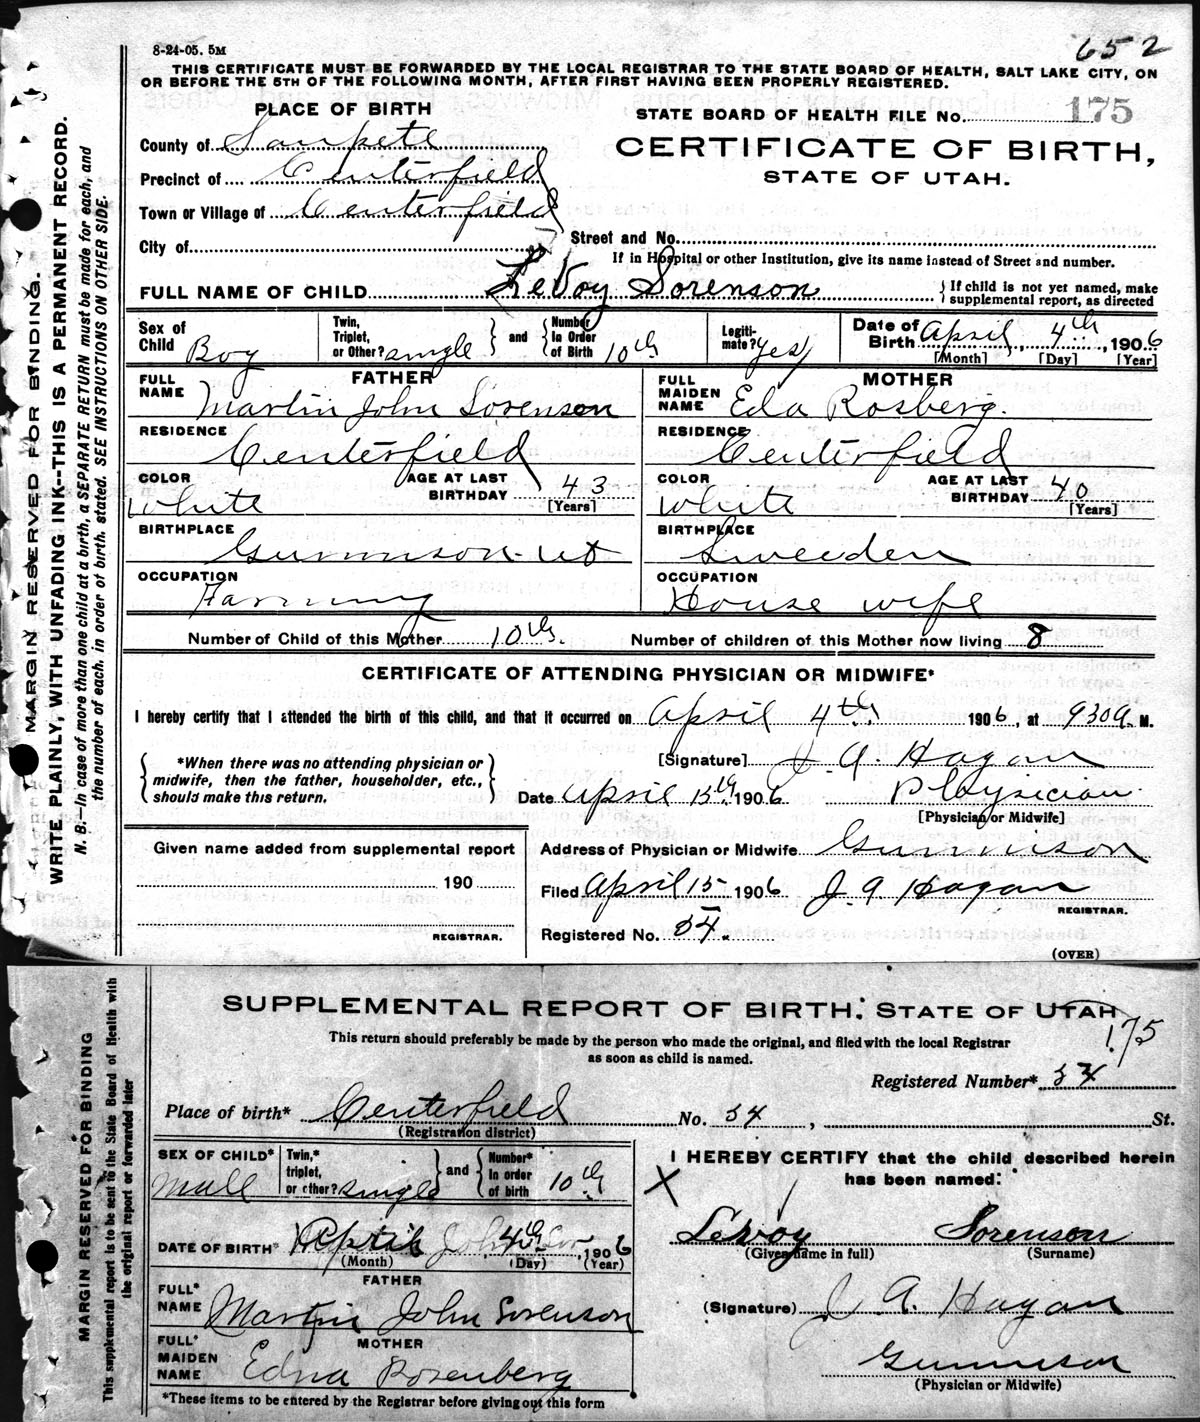 8-24-05. 5M
652
THIS CERTIFICATE MUST BE FORWARDED BY THE LOCAL REGISTRAR TO THE STATE BOARD OF HEALTH, SALT LAKE CITY, ON
OR BEFORE THE 5TH OF THE FOLLOWING MONTH, AFTER FIRST HAVING BEEN PROPERLY REGISTERED.
PLACE OF BIRTH
STATE BOARD OF HEALTH FILE No. 175
County of Sanpete
CERTIFICATE OF BIRTH,
Precinct of Centerfield
STATE OF UTAH.
Town or Village of Centerfield
City of
Street and No.
If in Hospital or other Institution, give its name instead of Street and number.
FULL NAME OF CHILD LeVoy Sorenson
{If child is not yet named, make
supplemental report, as directed
Sex of Child Boy
Twin, Triplet, or Other? single } and { Number In Order of Birth 10th
Legiti-mate? Yes
Date of Birth April 4th, 1906
[Month] [Day] [Year]
FATHER
FULL NAME Martin John Sorenson
RESIDENCE Centerfield
COLOR White
AGE AT LAST BIRTHDAY 43
[Years]
BIRTHPLACE Gunnison-ut
OCCUPATION Farming
MOTHER
FULL MAIDEN NAME Eda Rosberg.
RESIDENCE Centerfield
COLOR White
AGE AT LAST BIRTHDAY 40
[Years]
BIRTHPLACE Sweeden
OCCUPATION House wife
Number of Child of this Mother 10th.
Number of children of this Mother now living 8
CERTIFICATE OF ATTENDING PHYSICIAN OR MIDWIFE*
I hereby certify that I attended the birth of this child, and that it occurred on April 4th, 1906, at 930 a. M.
{ *When there was no attending physician or
midwife, then the father, householder, etc.,
should make this return. }
[Signature] J. A. Hagan
Date April 15th 1906
Physician.
[Physician or Midwife]
Given name added from supplemental report
190
REGISTRAR.
Address of Physician or Midwife Gunnison
Filed April 15 1906 J. A Hagan
REGISTRAR.
Registered No. 34.
(OVER)
MARGIN RESERVED FOR BINDING.
WRITE PLAINLY, WITH UNFADING INK--THIS IS A PERMANENT RECORD.
N. B.—In case of more than one child at a birth, a SEPARATE RETURN must be made for each, and
the number of each, in order of birth, stated. SEE INSTRUCTIONS ON OTHER SIDE.
SUPPLEMENTAL REPORT OF BIRTH. STATE OF UTAH
175
This return should preferably be made by the person who made the original, and filed with the local Registrar
as soon as child is named.
Registered Number* 34
Place of birth* Centerfield No. 34, St.
(Registration district)
SEX OF CHILD* Mall
Twin,* triplet, or other? single } and { Number* In order of birth 10th
DATE OF BIRTH* April 4th, 1906
(Month) (Day) (Year)
FATHER
FULL* NAME Martin John Sorenson
MOTHER
FULL* MAIDEN NAME Edna Rosenberg
*These items to be entered by the Registrar before giving out this form
X
I HEREBY CERTIFY that the child described herein
has been named:
LeVoy Sorenson
(Given name in full) (Surname)
(Signature) J A. Hagan
Gunnison
(Physician or Midwife)
MARGIN RESERVED FOR BINDING
This supplemental report is to be sent to the State Board of Health with
the original report or forwarded later